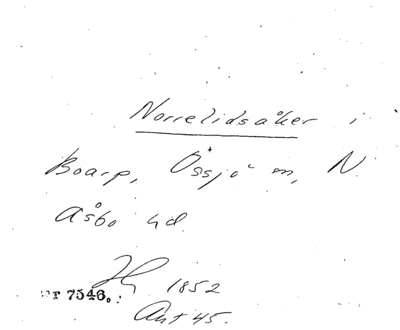 Norrelidsåker i
Boarp, Össjö sn, N.
Åsbo hd.
1852
Akt 45.
nr 7546.